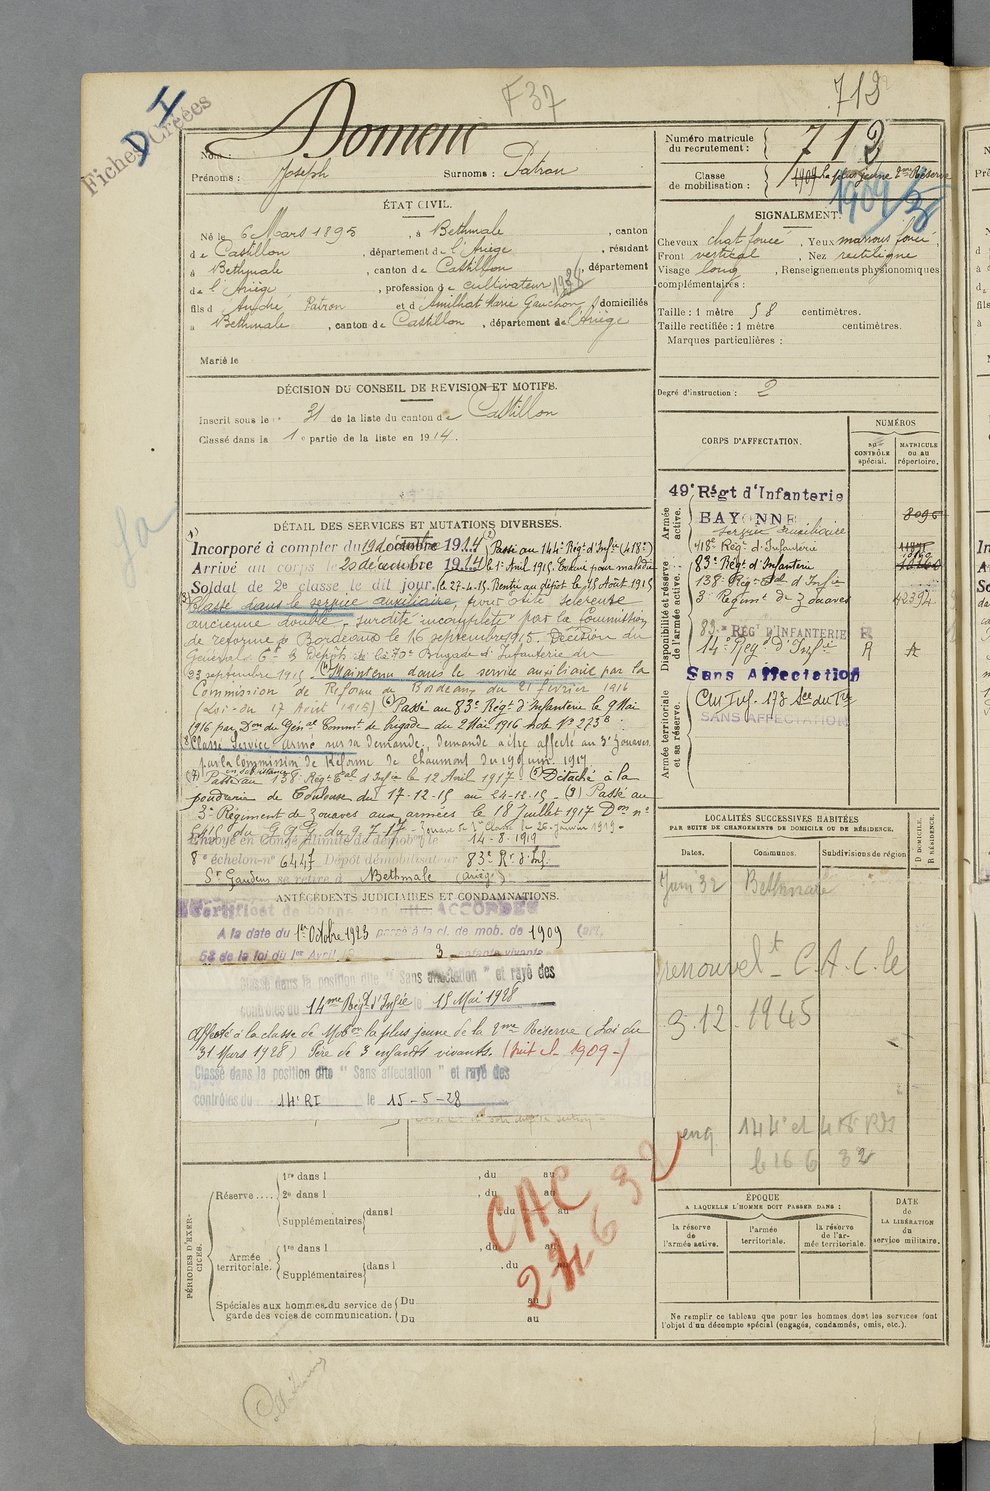 F 37
712
D I
Fiches Créées
Nom : Domenc
Prénoms : Joseph Surnoms : Patrau
Numéro matricule du recrutement : 712
Classe de mobilisation : 1909 la plus jeune 2me Réserve
1909/3
ÉTAT CIVIL.
Né le 6 Mars 1895, à Bethmale, canton
de Castillon, département de l'Ariège, résidant
à Bethmale, canton de Castillon, département
de l'Ariège, profession de cultivateur 1936
fils d André Patrau et d'Amilhat Marie domiciliés
à Bethmale, canton de Castillon, département de l'Ariège
Marié le
SIGNALEMENT.
Cheveux chat foncé, Yeux marrons foncé,
Front vertical, Nez rectiligne
Visage long, Renseignements physionomiques
complémentaires :
Taille : 1 mètre 58 centimètres.
Taille rectifiée : 1 mètre centimètres.
Marques particulières :
Degré d'instruction : 2
DÉCISION DU CONSEIL DE REVISION ET MOTIFS.
Inscrit sous le n° 31 de la liste du canton de Castillon
Classé dans la 1e partie de la liste en 1914.
CORPS D'AFFECTATION.
NUMÉROS
au CONTRÔLE spécial.
MATRICULE OU AU répertoire.
Armée active.
49e Régt d'Infanterie
BAYONNE
Service Auxiliaire
418e Régt d'Infanterie
Disponibilité et réserve de l'armée active.
83e Régt d'Infanterie
138e Régt d'Infie
3e Régiment de Zouaves 42394
83e RÉGt D'INFANTERIE R
14e Régt d'Infie R A
Sans Affectation
Armée territoriale et sa réserve.
SANS AFFECTATION
DÉTAIL DES SERVICES ET MUTATIONS DIVERSES.
Incorporé à compter du 19 décembre 1914 (2) Passé au 144e Régt d'Infie (418e)
Arrivé au corps le 20 décembre 1914 le 1er Avril 1915. Evacué pour maladie
Soldat de 2e classe le dit jour. le 27-4-15. Rentré au dépôt le 25 Août 1915
(3) Classé dans le service auxiliaire, pour otite scléreuse
ancienne double, surdité incomplète par la Commission
de réforme de Bordeaux le 16 septembre 1915. Décision du
23 septembre 1915 (4) Maintenu dans le service auxiliaire par la
Commission de Réforme de Bordeaux du 21 février 1916
(Loi du 17 Août 1915) (6) Passé au 83e Régt d'Infanterie le 9 Mai
1916 par Don du Génal Commt de brigade du 2 Mai 1916 note No 273B
(8) Classé Service Armé sur sa demande, demande à être affecté au 3e Zouaves
par la Commission de Réforme de Chaumont du 19 juin 1917
(7) Passé au 138e Régt d'Infie le 12 Avril 1917 (5) Détaché à la
poudrerie de Toulouse du 17-12-15 au 24-12-15 - (9) Passé au
3e Régiment de Zouaves aux armées le 18 Juillet 1917 Don no
5415 du G.Q.G. du 9.7.17 - Zouave de 1e Classe le 26 Janvier 1919 -
Envoyé en congé illimité de démobilisation le 14-8-1919
8e échelon no 6447 Dépôt démobilisateur 83e Rt d'Inf.
St Gaudens se retire à Bethmale (Ariège)
ANTÉCÉDENTS JUDICIAIRES ET CONDAMNATIONS.
Certificat de bonne conduite ACCORDÉ
A la date du 1er Octobre 1923 passé à la cl. de mob. de 1909 (art.
58 de la loi du 1er Avril 3 enfants vivants
Classé dans la position dite "Sans affectation" et rayé des
contrôles du 14me Régt d'Infie le 15 Mai 1928
Affecté à la classe de Mobon la plus jeune de la 2me Réserve (Loi du
31 Mars 1928) Père de 3 enfants vivants. (suit cl. 1909-)
Classé dans la position dite "Sans affectation" et rayé des
contrôles du 14e RI le 15-5-28
LOCALITÉS SUCCESSIVES HABITÉES
PAR SUITE DE CHANGEMENTS DE DOMICILE OU DE RÉSIDENCE.
Dates. Communes. Subdivisions de région D DOMICILE. R RÉSIDENCE.
Juin 32 Bethmale
renouvelt C.A.C. le
3.12.1945
144e et 418e RI
le 16 6 32
CAC
24 6 32
PÉRIODES D'EXERCICES.
Réserve.... 1re dans l , du au
2e dans l , du au
Supplémentaires dans l , du au
Armée territoriale. 1re dans l , du au
Supplémentaires dans l , du au
Spéciales aux hommes du service de garde des voies de communication. Du au
Du au
ÉPOQUE
A LAQUELLE L'HOMME DOIT PASSER DANS :
la réserve de l'armée active.
l'armée territoriale.
la réserve de l'armée territoriale.
DATE de LA LIBÉRATION du service militaire.
Ne remplir ce tableau que pour les hommes dont les services font
l'objet d'un décompte spécial (engagés, condamnés, omis, etc.).